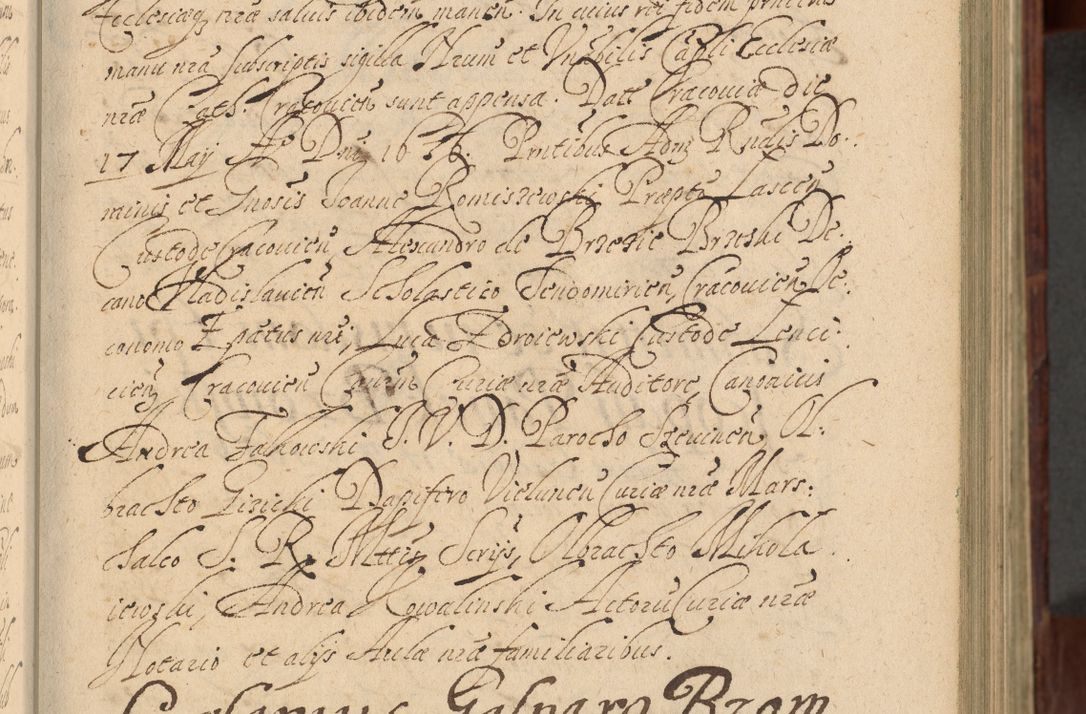 Ecclesiaeq nrae salvis ibidem manen. In cuius rei fidem prntibus
manu nra subscriptis sigilla Nrum et Vnrbilis Capli Ecclesiae
nrae Cath. Cracovien sunt appensa. Datt Cracoviae die
17 Maij Ao Dni 1636. Prntibus Adm Rndis Do.
minis et Gnosis Joanne Romiszewski Praepto Lascen
Custode Cracovien, Alexandro de Brzezie Brzeski De.
cano Vladislavien Scholastico Sendomirien, Cracovien Oe.
conomo Epatus nri, Luca Zdroiewski Custode Lenci.
cien, Cracovien Caurm Curiae nrae Auditore, Canonicis
Andrea Falkowski I. V. D. Parocho Sgevinen, Ol.
brachto Gisicki Dapifero Vielunen Curiae nrae Mars:
chalco S. R. Mttis Scrijs, Olbrachto Mikola
iewski, Andrea Kowalinski Actoru Curiae nrae
Notario et alijs Aulae nrae familiaribus.
Gasparo Brom